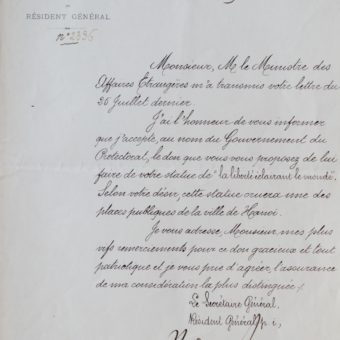 RÉSIDENT GÉNÉRAL
n° 2396
Monsieur, M. le Ministre des
Affaires Étrangères m'a transmis votre lettre du
26 Juillet dernier.
J'ai l'honneur de vous informer
que j'accepte, au nom du Gouvernement du
Protectorat, le don que vous vous proposez de lui
faire de votre statue de "la liberté éclairant le monde".
Selon votre désir, cette statue ornera une des
places publiques de la ville de Hanoi.
Je vous adresse, Monsieur, mes plus
vifs remerciements pour ce don gracieux et tout
patriotique et je vous prie d'agréer, l'assurance
de ma considération la plus distinguée./.
Le Secrétaire Général,
Résident Général p. i.,